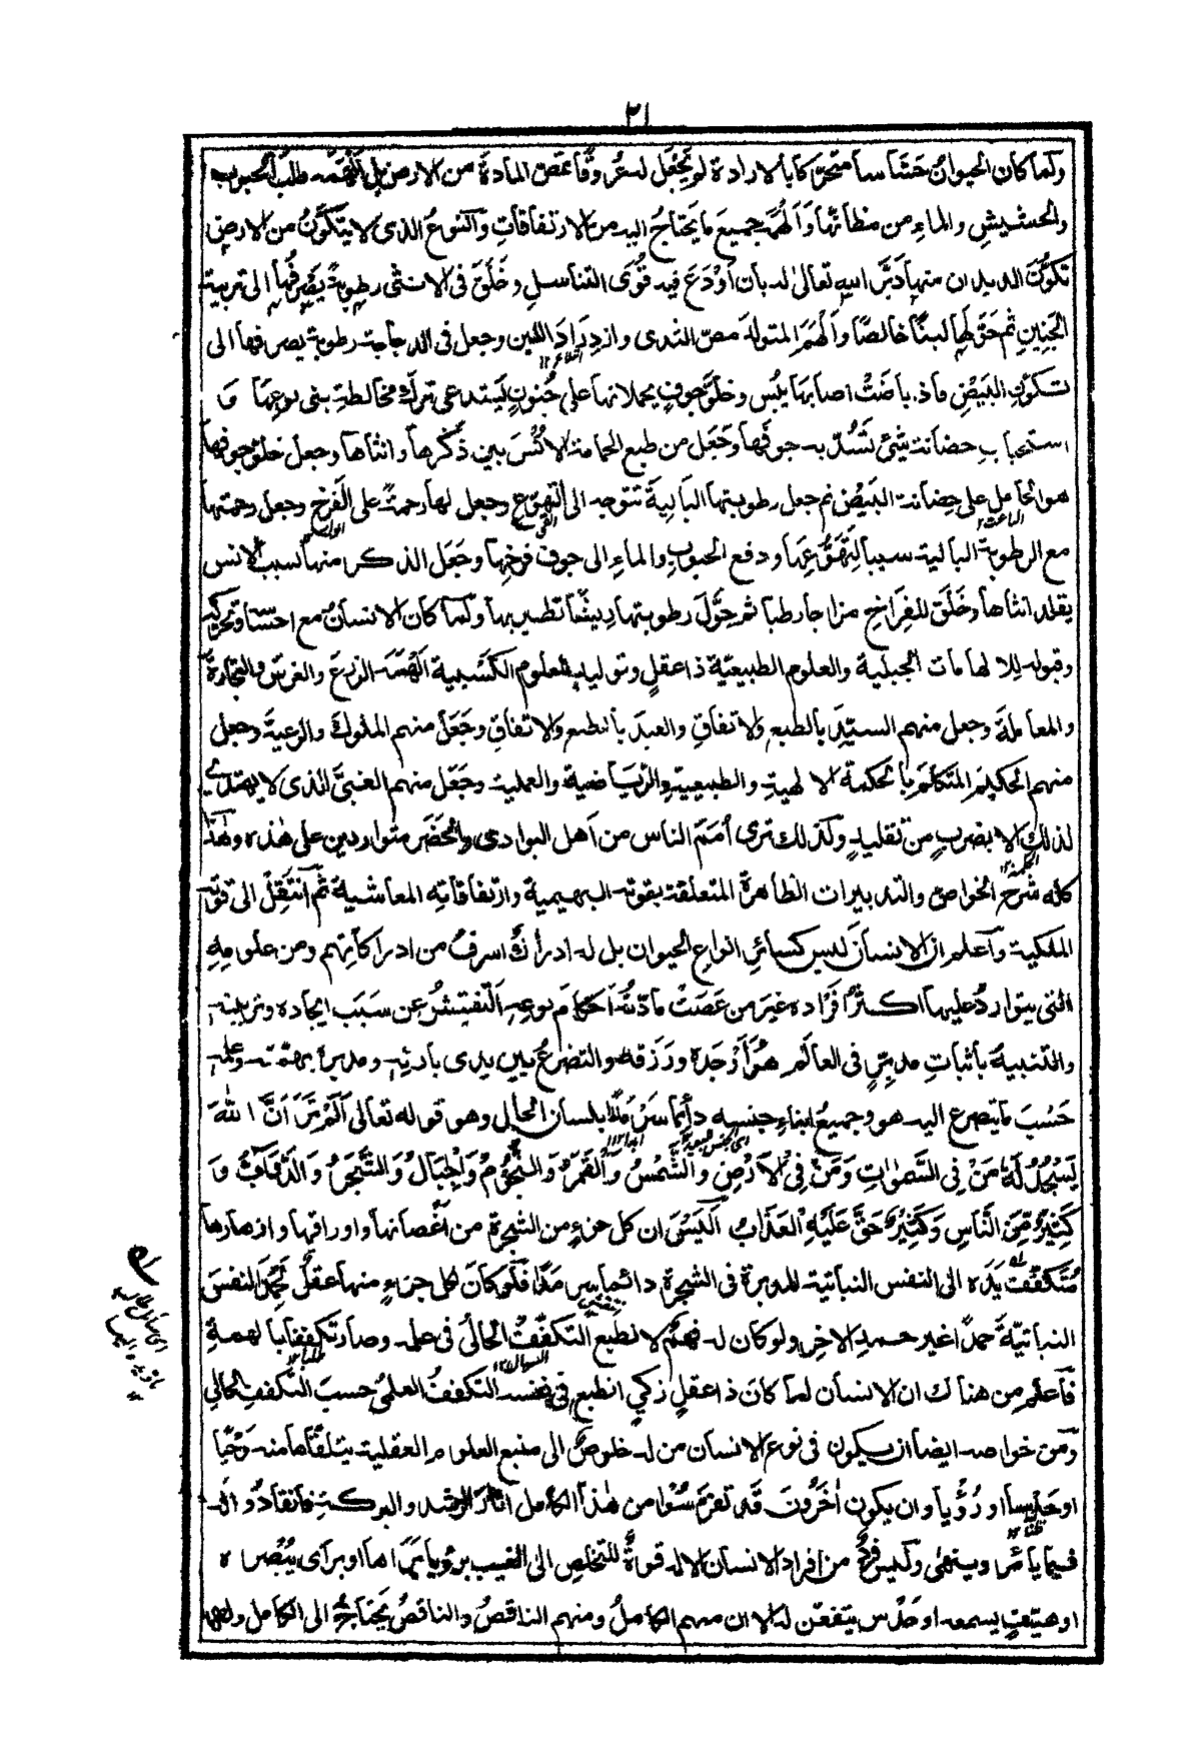 ٢١
ولما كان الحيوانُ حسّاسا متحرّكا بالارادة لم يجُعَل له عُروقًا تَمُصّ المادةَ من الارض بل اَلْهَمَه طلبَ الحبوب
والحشيشِ والماءِ من مظانّها وَاَلهَمَه جميعَ ما يَحتاجُ اليه من الارتفاقاتِ وَالنوعُ الذى لا يتكَوَّنُ من الارضِ
تَكوُّنَ الديدان منها دَبَّرَ اللهِ تعالىٰ له بان اَوْدَعَ فيه قُوَى التناسلِ وخَلَقَ فى الانثى رطوبةً يَصْرِفُها الى تربيةِ
الجَنِينِ ثم حَوّلها لبنًا خالصًا واَلهَمَ المتولدَ مصّ الثدى وازدِرَادَ اللبن وجعل فى الدجاجة رطوبة يصرفها الى
تكوّنِ البَيْضِ فاذا باضَتْ اصابها يُبْس وخلوُّ جوفٍ يحملانها على جُنونٍ يَستدعى تركَ مخالطةِ بنى نوعِها وَ
استحبابِ حضانةِ شئى تَسُدّ به جوفَها وجَعَل من طبع الحمامة الاُنْسَ بين ذَكَرها وانثاها وجعل خلوّ جوفها
هو الحاملَ على حِضانة البَيْض ثم جعل رطوبتها البَاليةَ تتوجه الى التهوّع وجعل لها رحمةً على الفَرخِ وجعل رحمتها
مع الرطوبة البالية سببا لِتَهَوُّعِها ودفع الحبوبِ والماءِ الى جوف فرخِها وجَعَل الذكر منها لسبب الانس
يقلد انثاها وخَلَق للفِرَاخِ مزاجا رطبا ثم حَوَّلَ رطوبتها رِيشًا تطير بها ولما كان الانسانُ مع احساسه وتحركه
وقبوله للالهامات الجبلية والعلوم الطبيعيّة ذا عقلٍ وتوليدٍ للعلوم الكَسْبية اَلْهَمَه الزرعَ والغرسَ والتجارةَ
والمعاملةَ وجعل منهم السيّدَ بالطبع والاتفاقِ والعبدَ بالطبع والاتفاقِ وجَعَل منهم الملوكَ والرعيةَ وجعل
منهم الحكيمَ المتكلمَ بالحكمة الالهيةِ والطبيعيةِ والرياضيةِ والعملية وجَعَل منهم الغبىَّ الذى لا يهتدى
لذلك الا بضربٍ من تقليدٍ وكذلك ترى اُمَمَ الناس من اَهل البوادى والحَضَر متواردين على هٰذه وهٰذا
كله شرحُ الخواصِ والتدبيرات الظاهرةِ المتعلقة بقوته البهيمية وارتفاقاتِه المعاشيةِ ثم انتَقِل الى قوته
الملكية واعلم ان الانسانَ ليس كسائرِ انواعِ الحيوان بل له ادراكٌ اشرفُ من ادراكاتِهم ومن علومِهِ
التى يتواردُ عليها اكثرُ افرادِه غيرَ من عَصَتْ مادّتُه احكامَ نوعِهِ التفتيشُ عن سَبَب ايجاده وتربيته
والتنبيهُ باثباتِ مدبّرٍ فى العالَم هُوَ اَوْجَدَه ورَزَقه والتضرعُ بين يدى بارئه ومدبره بهمّته وعِلمه
حَسْبَ ما يتضرع اليه هو وجميعُ ابناءِ جنسِه دائما سَرْمدًا بلسان الحال وهو قوله تعالىٰ اَلَمْ تَرَ اَنَّ اللّٰهَ
يَسْجُدُ لَهٗ مَنْ فِى السَّمٰوٰاتِ وَمَنْ فِى الْاَرْضِ وَالشَّمْسُ وَالْقَمَرُ وَالنُّجُوْمُ وَالْجِبَالُ وَالشَّجَرُ وَالدَّوَآبُّ وَ
كَثِيْرٌ مِّنَ النَّاسِ وَكَثِيْرٌ حَقَّ عَلَيْهِ الْعَذَابُ اَلَيسَ ان كل جزءٍ من الشجرة من اَغْصانها واوراقها وازهارها
مُتَكفّفٌ يَدَه الى النفس النباتية المدبرة فى الشجرة دائما سرمدًا فلو كان لكل جزءٍ منها عقلٌ لَحَمِدَ النفسَ
النباتيّةَ حمدًا غير حمدِ الاخر ولو كان له فَهمٌ لانطبع التكففُ الحالىُ فى علمه وصار تكففا بالهمةِ
فاعلم من هنالك ان الانسان لما كان ذا عقلٍ زكيٍ انطبع فى نفسه التكففُ العلمىُ حسبَ التكففِ الحالي
ومن خواصه ايضا ان يكون فى نوع الانسان من له خلوصٌ الى منبع العلوم العقلية يتلقّاها منه وَحْيًا
او حدْسا او رُؤْيا وان يكون اٰخَرُونَ قد تفرّسُوا من هٰذا الكامل اٰثارَ الرشد والبركة فانقادُوا له
فيما يأمُر وينهىٰ وليس فردٌ من افراد الانسان الا له قوةٌ للتخلصِ الى الغيب برؤيا يَراها او برأى يُبْصره
او هتيفٍ يسمعه او حَدْسٍ يتفطّن له الا ان منهم الكاملُ ومنهم الناقصُ والناقصُ يَحتاجُ الى الكامل ولها